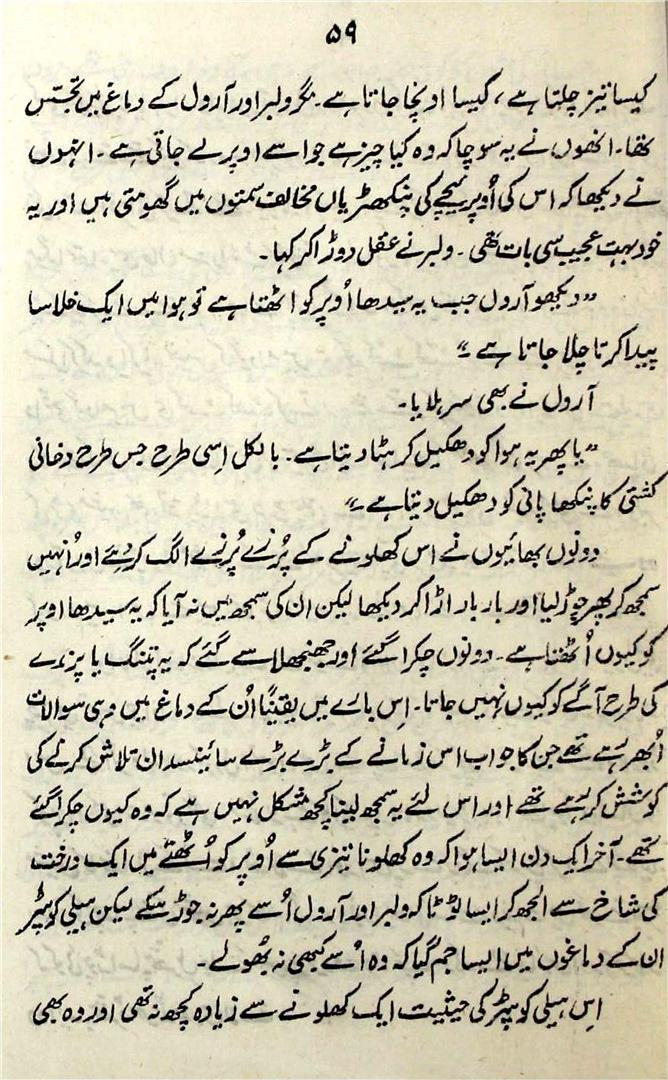 ۵۹
کیسا تیز چلتا ہے، کیسا اونچا جاتا ہے۔ مگر ولبر اور آرول کے دماغ میں تجسس
تھا۔ انھوں نے یہ سوچا کہ وہ کیا چیز ہے جو اسے اوپر لے جاتی ہے۔ انہوں
نے دیکھا کہ اس کی اُوپر نیچے کی پنکھڑیاں مخالف سمتوں میں گھومتی ہیں اور یہ
خود بہت عجیب سی بات تھی۔ ولبر نے عقل دوڑا کر کہا۔
”دیکھو آرول جب یہ سیدھا اُوپر کو اٹھتا ہے تو ہوا میں ایک خلا سا
پیدا کرتا چلا جاتا ہے۔“
آرول نے بھی سر ہلایا۔
”یا پھر یہ ہوا کو دھکیل کر ہٹا دیتا ہے۔ بالکل اِسی طرح جس طرح دخانی
کشتی کا پنکھا پانی کو دھکیل دیتا ہے۔“
دونوں بھائیوں نے اس کھلونے کے پُرزے پُرزے الگ کر دیئے اور اُنہیں
سمجھ کر پھر جوڑ لیا اور بار بار اڑا کر دیکھا لیکن ان کی سمجھ میں نہ آیا کہ یہ سیدھا اوپر
کو کیوں اُٹھتا ہے۔ دونوں چکرا گئے اور جھنجھلا سے گئے کہ یہ پتنگ یا پرندے
کی طرح آگے کو کیوں نہیں جاتا۔ اِس بارے میں یقیناً اُن کے دماغ میں وہی سوالات
اُبھر رہے تھے جن کا جواب اس زمانے کے بڑے بڑے سائینسدان تلاش کرنے کی
کوشش کر رہے تھے اور اس لئے یہ سمجھ لینا کچھ مشکل نہیں ہے کہ وہ کیوں چکرا گئے
تھے۔ آخر ایک دن ایسا ہوا کہ وہ کھلونا تیزی سے اُوپر کو اُٹھتے میں ایک درخت
کی شاخ سے الجھ کر ایسا ٹوٹا کہ ولبر اور آرول اُسے پھر نہ جوڑ سکے لیکن ہیلی کوپٹر
ان کے دماغوں میں ایسا جم گیا کہ وہ اُسے کبھی نہ بھُولے۔
اِس ہیلی کوپٹر کی حیثیت ایک کھلونے سے زیادہ کچھ نہ تھی اور وہ بھی